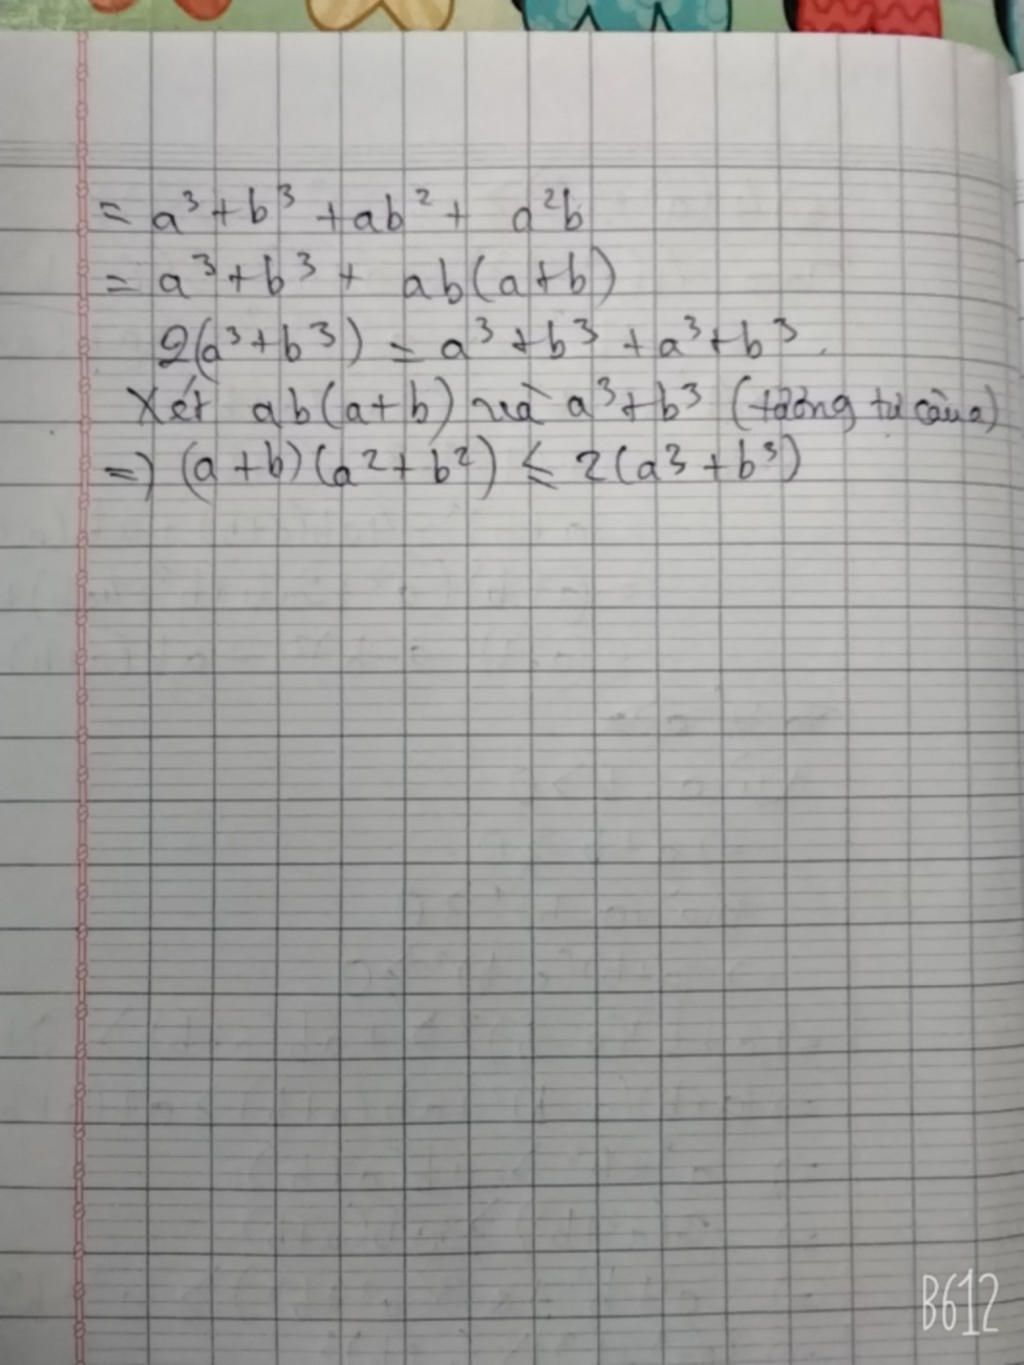 = a³ + b³ + ab² + a²b
= a³ + b³ + ab(a+b)
2(a³ + b³) = a³ + b³ + a³ + b³.
Xét ab(a+b) và a³ + b³ (tương tự câu a)
=) (a + b)(a² + b²) ≤ 2(a³ + b³)
B612